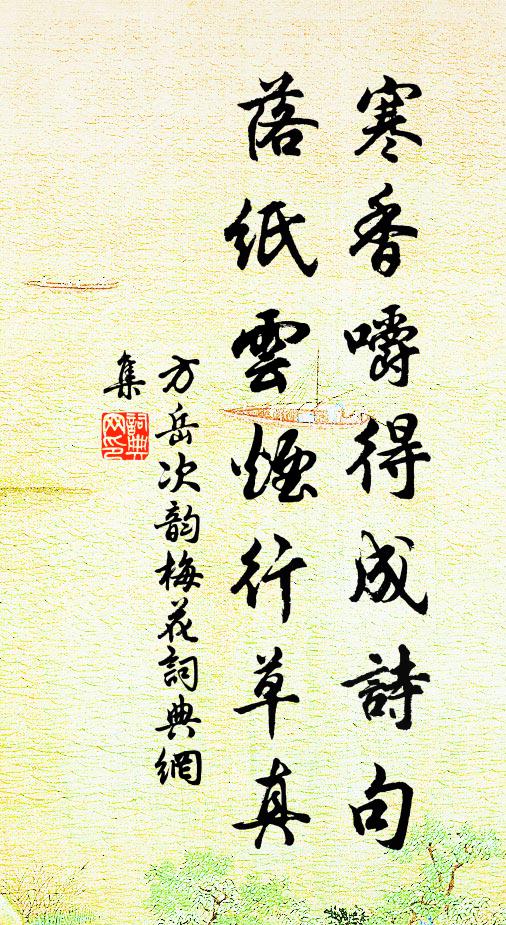 寒香嚼得成詩句
落紙雲煙行草真
方岳次韵梅花詞典網
集
詞典
网印